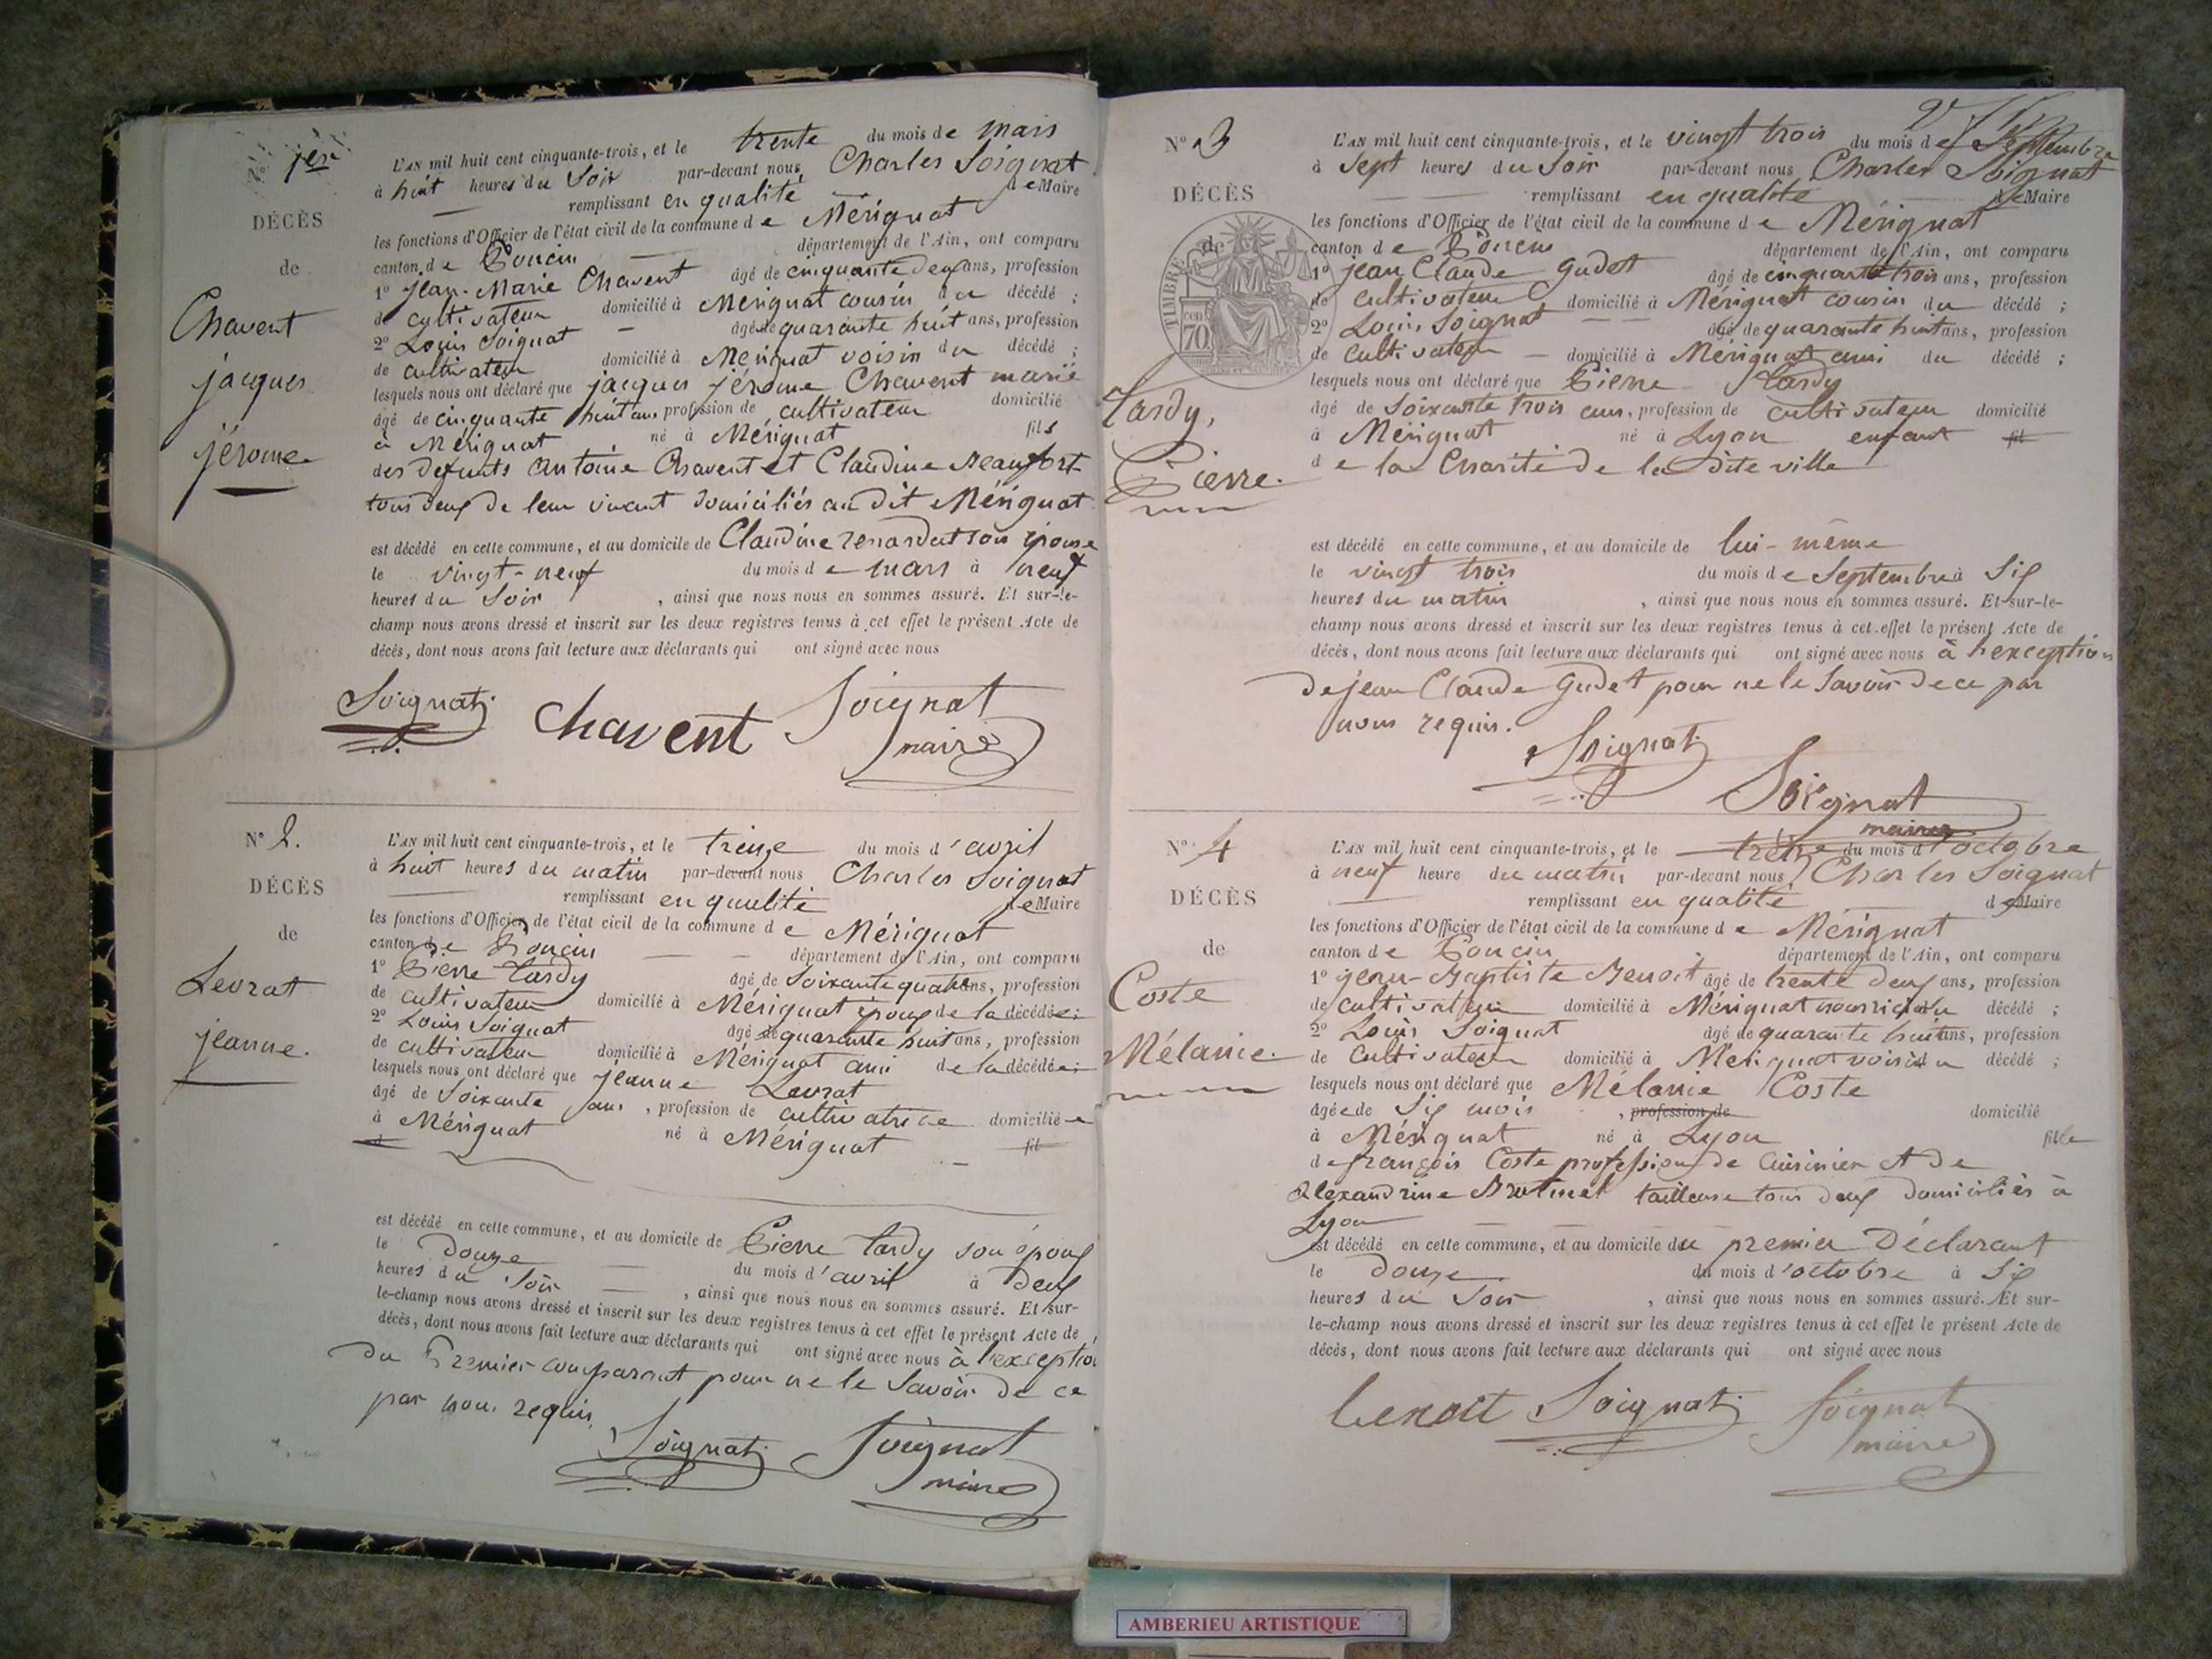 N° 1er
DÉCÈS
de
Chavent
jacques
jérome
L'AN mil huit cent cinquante-trois, et le trente du mois de mars
à huit heures du Soir par-devant nous Charles Soignat
remplissant en qualité de Maire
les fonctions d'Officier de l'état civil de la commune de Mérignat
canton de Poncin département de l'Ain, ont comparu
1° jean-Marie Chavent âgé de cinquante deux ans, profession
de cultivateur domicilié à Mérignat cousin du décédé ;
2° Louis Soignat âgé de quarante huit ans, profession
de cultivateur domicilié à Mérignat voisin du décédé ;
lesquels nous ont déclaré que jacques jérome Chavent marié
âgé de cinquante huit ans profession de cultivateur domicilié
à Mérignat né à Mérignat fils
des defunts antoine Chavent et Claudine Beaufort
tous deux de leur vivant domiciliés au dit Mérignat
est décédé en cette commune, et au domicile de Claudine son épouse
le vingt-neuf du mois de mars à neuf
heures du Soir , ainsi que nous nous en sommes assuré. Et sur-le-
champ nous avons dressé et inscrit sur les deux registres tenus à cet effet le présent Acte de
décès, dont nous avons fait lecture aux déclarants qui ont signé avec nous
Soignat chavent Soignat
maire
N° 2.
DÉCÈS
de
Levrat
jeanne.
L'AN mil huit cent cinquante-trois, et le treize du mois d'avril
à huit heures du matin par-devant nous Charles Soignat
remplissant en qualité de Maire
les fonctions d'Officier de l'état civil de la commune de Mérignat
canton de Poncin département de l'Ain, ont comparu
1° Pierre tardy âgé de Soixante quatre ans, profession
de cultivateur domicilié à Mérignat époux de la décédée ;
2° Louis Soignat âgé de quarante huit ans, profession
de cultivateur domicilié à Mérignat ami de la décédée ;
lesquels nous ont déclaré que jeanne Levrat
âgé de Soixante ans , profession de cultivatrice domiciliée
à Mérignat né à Mérignat fil
est décédé en cette commune, et au domicile de Pierre tardy son époux
le douze du mois d'avril à deux
heures du Soir , ainsi que nous nous en sommes assuré. Et sur-
le-champ nous avons dressé et inscrit sur les deux registres tenus à cet effet le présent Acte de
décès, dont nous avons fait lecture aux déclarants qui ont signé avec nous à l'exception
du Premier comparant pour ne le Savoir de ce
par nous requis.
Soignat Soignat
maire
N° 3
DÉCÈS
de
TIMBRE
70
Tardy,
Pierre.
L'AN mil huit cent cinquante-trois, et le vingt trois du mois de Septembre
à Sept heures du Soir par-devant nous Charles Soignat
remplissant en qualité de Maire
les fonctions d'Officier de l'état civil de la commune de Mérignat
canton de Poncin département de l'Ain, ont comparu
1° jean Claude Gudet âgé de cinquante trois ans, profession
de cultivateur domicilié à Mérignat cousin du décédé ;
2° Louis Soignat âgé de quarante huit ans, profession
de Cultivateur domicilié à Mérignat ami du décédé ;
lesquels nous ont déclaré que Pierre tardy
âgé de Soixante trois ans, profession de cultivateur domicilié
à Mérignat né à Lyon enfant fil
de la Charité de la dite ville
est décédé en cette commune, et au domicile de lui-même
le vingt trois du mois de Septembre à Six
heures du matin , ainsi que nous nous en sommes assuré. Et sur-le-
champ nous avons dressé et inscrit sur les deux registres tenus à cet effet le présent Acte de
décès, dont nous avons fait lecture aux déclarants qui ont signé avec nous à l'exception
de jean Claude Gudet pour ne le Savoir de ce par
nous requis.
Soignat
Soignat
maire
N° 4
DÉCÈS
de
Coste
Mélanie.
L'AN mil huit cent cinquante-trois, et le treize du mois d'octobre
à neuf heure du matin par-devant nous Charles Soignat
remplissant en qualité de Maire
les fonctions d'Officier de l'état civil de la commune de Mérignat
canton de Poncin département de l'Ain, ont comparu
1° jean-Baptiste Benoit âgé de trente deux ans, profession
de cultivateur domicilié à Mérignat du décédé ;
2° Louis Soignat âgé de quarante huit ans, profession
de Cultivateur domicilié à Mérignat voisin du décédé ;
lesquels nous ont déclaré que Mélanie Coste
âgée de Six mois , profession de domicilié
à Mérignat né à Lyon fille
de françois Coste profession de Cuisinier et de
alexandrine tailleuse tous deux domiciliés à
Lyon
est décédé en cette commune, et au domicile du premier Déclarant
le douze du mois d'octobre à Six
heures du Soir , ainsi que nous nous en sommes assuré. Et sur-
le-champ nous avons dressé et inscrit sur les deux registres tenus à cet effet le présent Acte de
décès, dont nous avons fait lecture aux déclarants qui ont signé avec nous
benoit Soignat Soignat
maire
AMBERIEU ARTISTIQUE